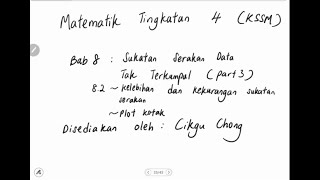 Matematik Tingkatan 4 (KSSM)
Bab 8 : Sukatan Serakan Data
Tak Terkumpul (part 3)
8.2 ~ Kelebihan dan kekurangan sukatan
serakan
~ Plot kotak
Disediakan oleh : Cikgu Chong